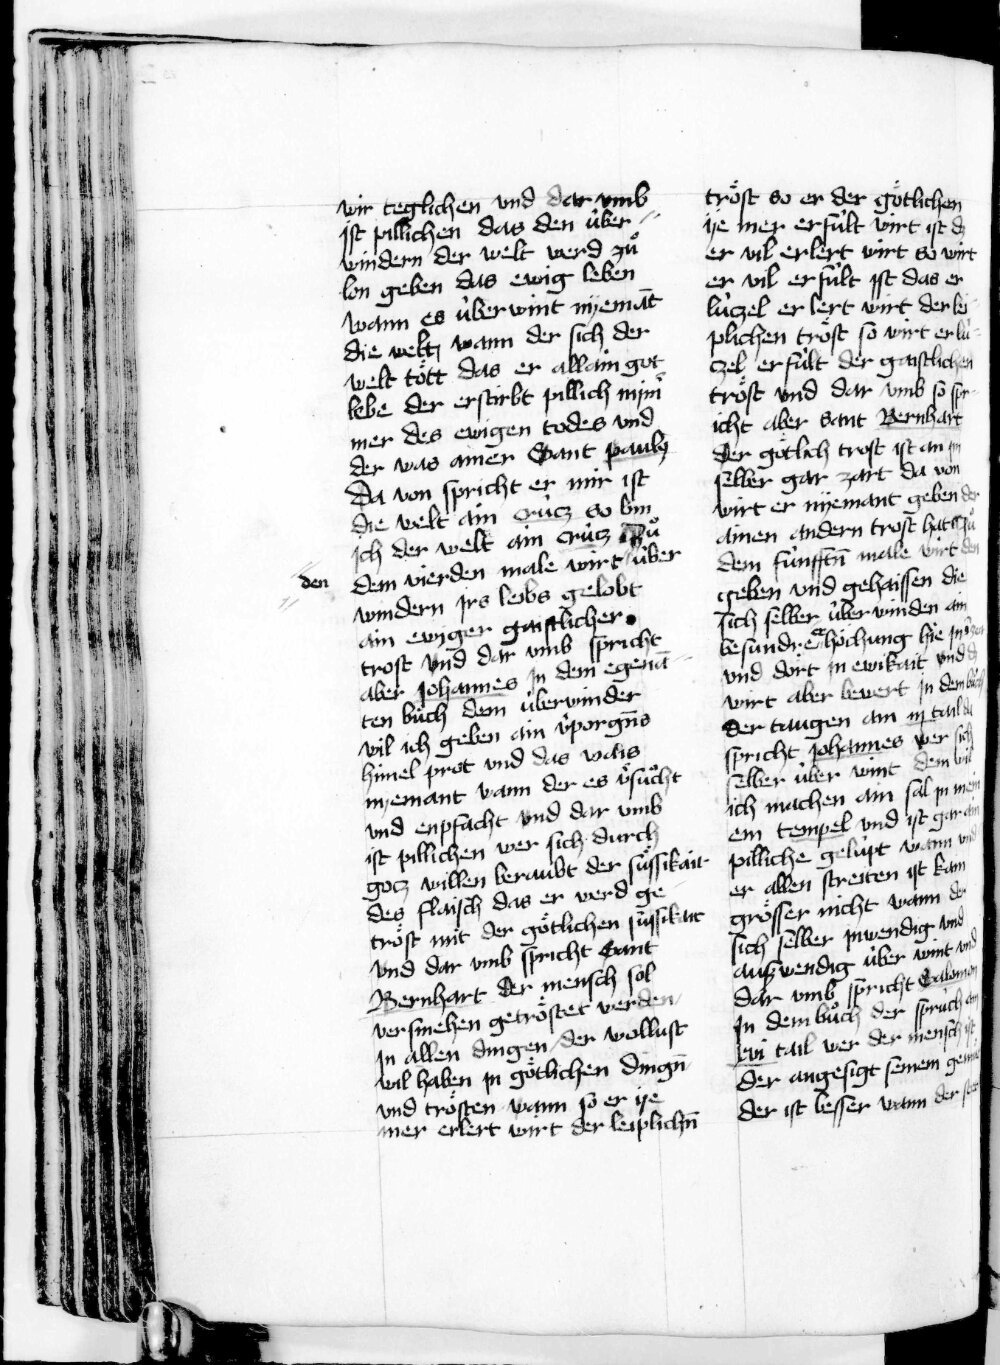 wir teglichen vnd dar vmb
jst pillichen das den über
windern der welt werd zuͦ
lon geben das ewig leben
wann es überwint nyemāt
die welt wann der sich der
welt toͤtt das er allain got
lebe der erstirbt pillich nym̄
mer des ewigen todes vnd
der was ainer Sant pauls
Da von spricht er mir ist
die welt ain crücz so bin
ich der welt ain crücz zuͦ
dem vierden male wirt über
den
windern jrs leibs gelobt
ain ewiger gaistlicher
trost vnd dar vmb spricht
aber johannes in dem egenā
ten buͦch dem überwinder
wil ich geben ain v̓porgn̄s
himel prot vnd das wais
nyemant wann der es v̓suͦcht
vnd enpfacht vnd dar vmb
ist pillichen wer sich durch
gocz willen beraubt der suͤssikait
des flaisch das er werd ge
troͤst mit der goͤtlichen suͤssikait
vnd dar vmb spricht Sant
Bernhart Der mensch sol
versmehen getroͤstet werden
jn allen dingen der wollust
wil haben jn goͤtlichen dingn̄
vnd troͤsten wann so er ye
mer erlert wirt der leiplichn̄
troͤst so er der goͤtlichen
ye mer erfült wirt ist dz
er vil erlert wirt so wirt
er vil erfült jst das er
lüczel er lert wirt der lei
plichen troͤst so wirt er lü
czel erfült der gaistlichen
troͤst vnd dar vmb so spr
icht aber Sant Bernhart
Der goͤtlich trost ist an jm
selber gar zart da von
wirt er nyemant geben der
ainen andern trost hat zuͦ
dem fünfftn̄ male wirt den
geben vnd gehaissen die
sich selber überwinden ain
besundre hoͤchung hie in zeit
vnd dort jn ewikait vnd dz
wirt aber bewert jn dem buͦch
der taugen am iij tail da
spricht johannes wer sich
selber über wint dem wil
ich machen ain sal jn mein
em tempel vnd ist gar ain
pilliche gelüpt wann vnd
er allen streiten ist kain
groͤsser nicht wann der
sich selber jnwendig vnd
auswendig über wint vnd
dar vmb spricht Salomon
jn dem buͦch der sprüch am
xvi tail wer der mensch ist
der angesigt seinem gemüt
der ist besser wann der